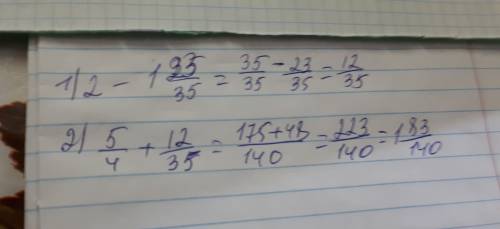 1) 2 - 1 23/35 = 35/35 - 23/35 = 12/35
2) 5/4 + 12/35 = 175+48/140 = 223/140 = 1 83/140